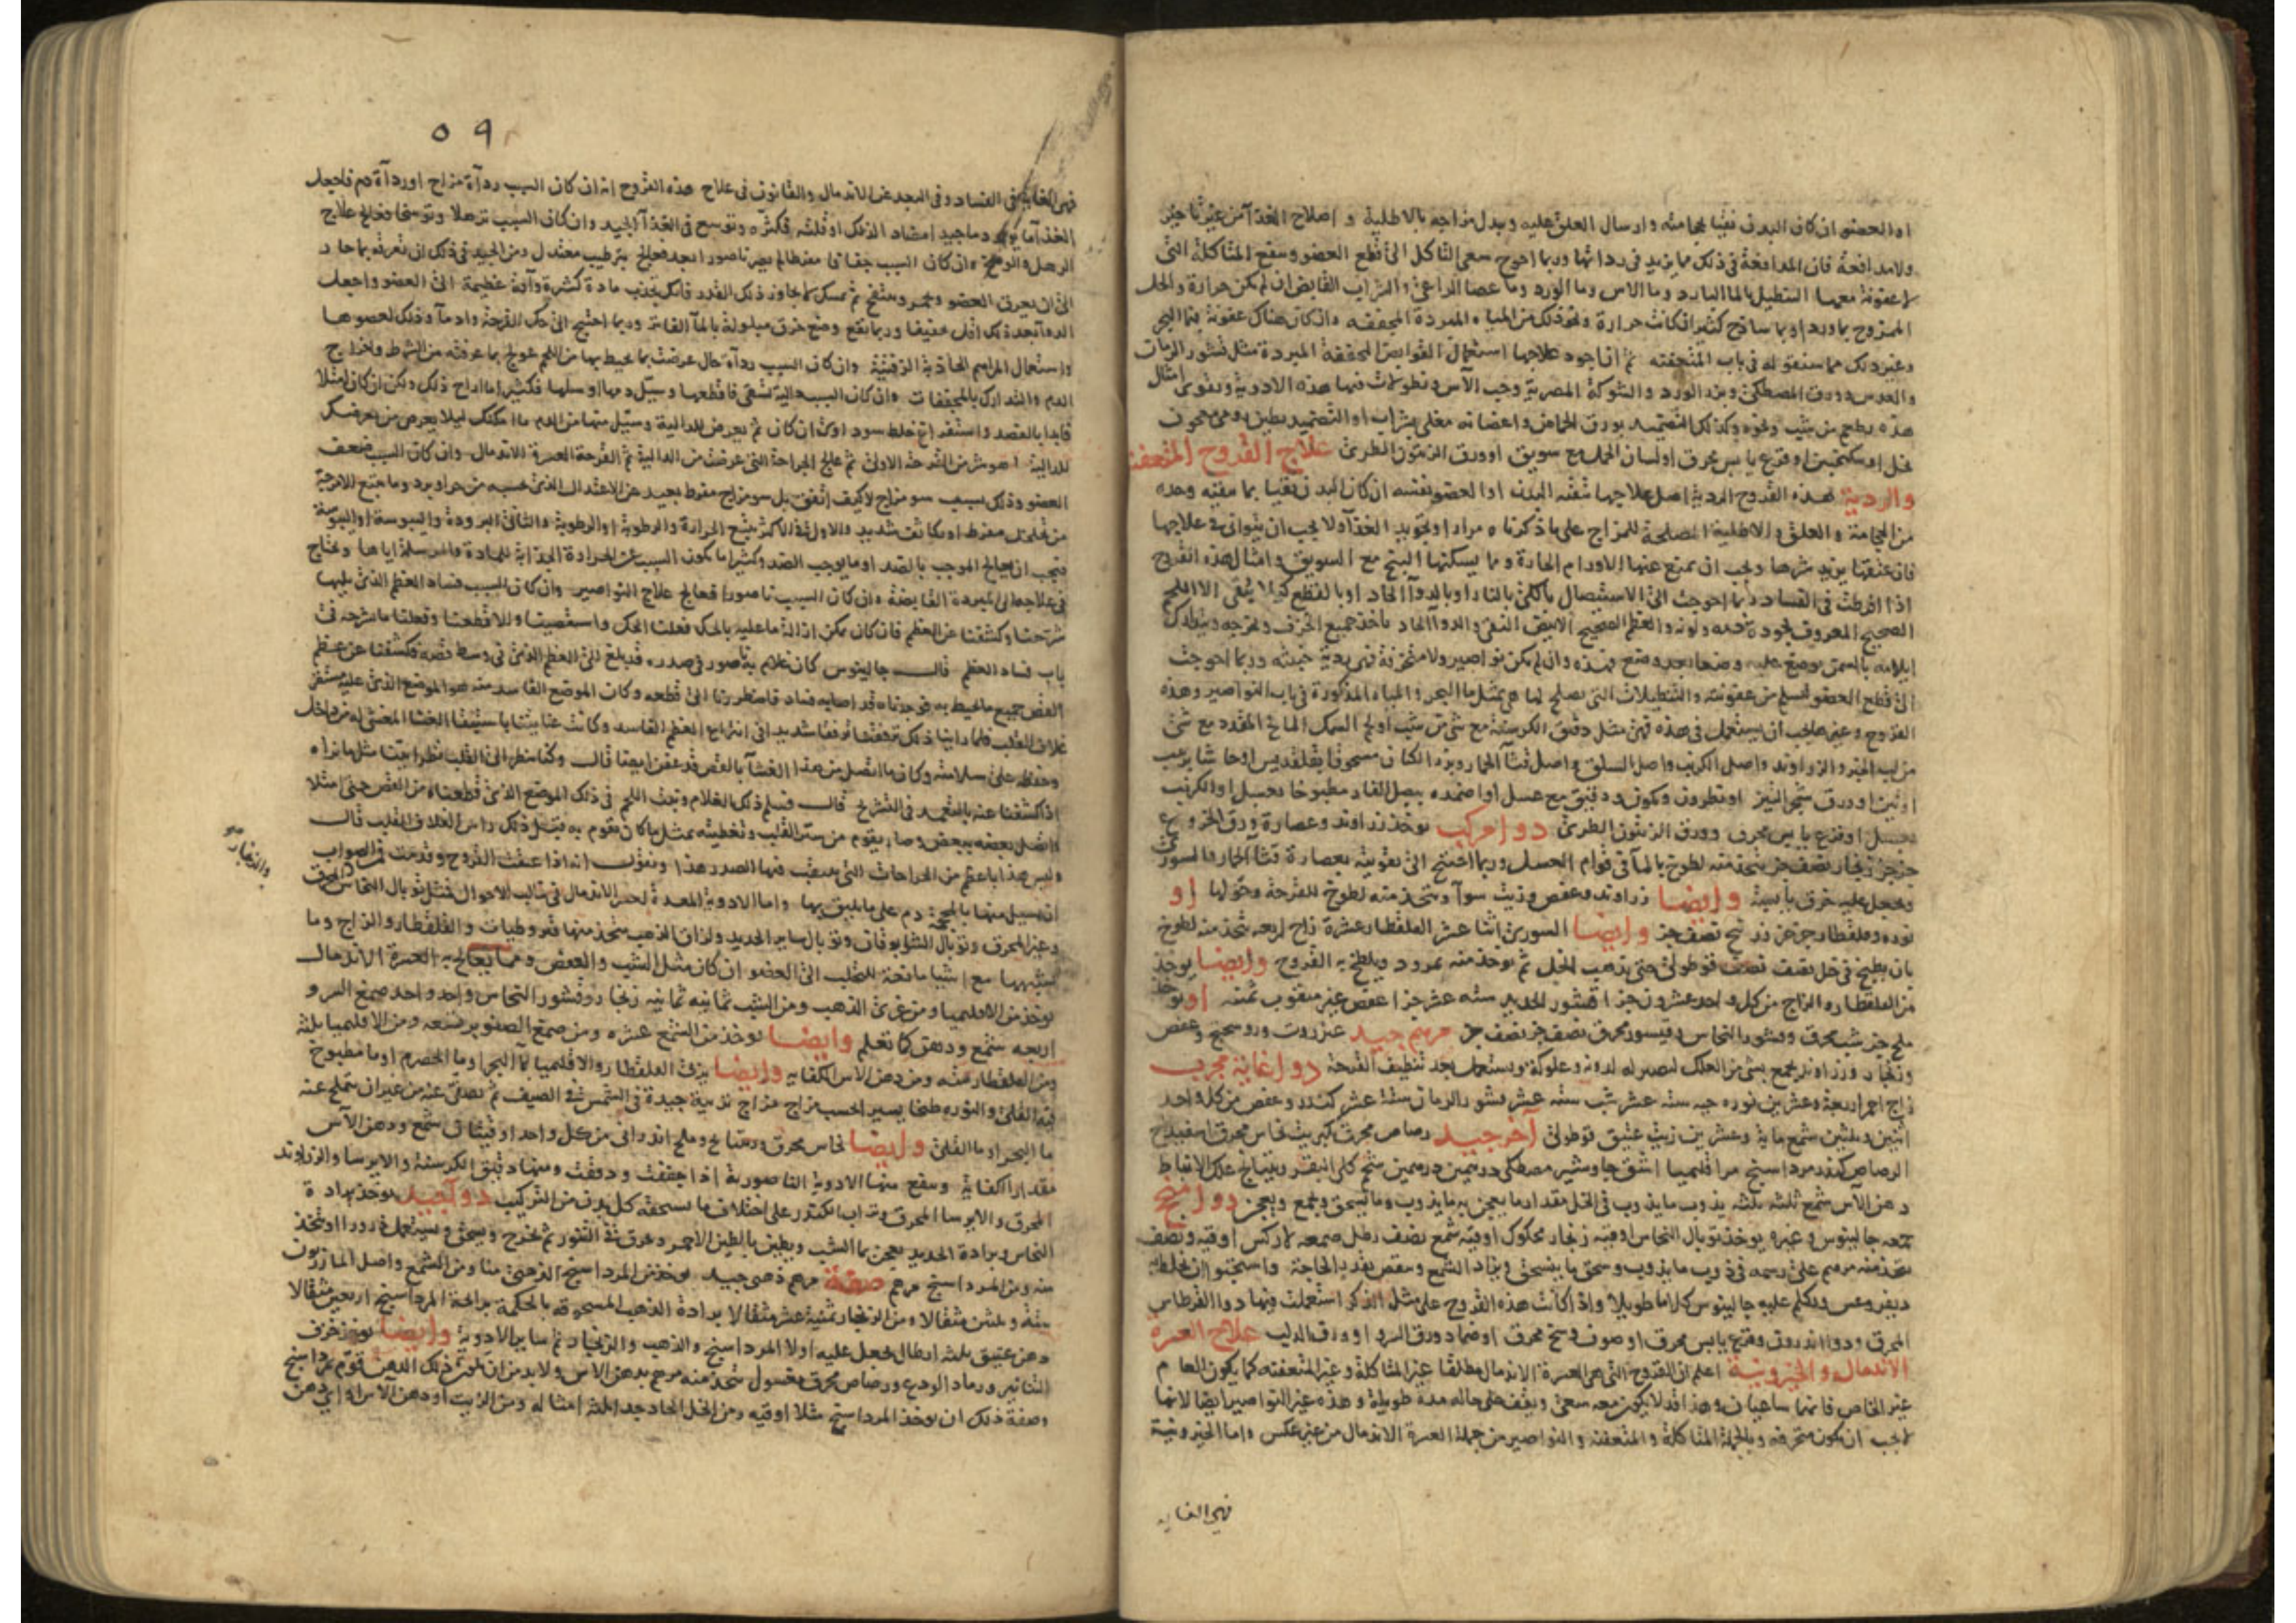 او العضو ان كان البدن نقيا بمحجامته وارسال العلق عليه وبدل مزاجه بالاطلية و اصلاح الغذآ من غير تاخير
ولا مدافعة فان المدافعة فى ذلك مما يزيد فى رداتها وربما احوج سعى التاكل الى قطع العضو وينفع المتاكلة التى
لا عفونة معها التنطيل بالمآ البارد وماالاس وماالورد وما عصا الراعى والشراب القابض ان لم يكن حرارة والخل
الممزوج بماورد او بما ساذج كثير ان كانت حرارة ونحو ذلك من المياه المبردة المجففه وان كان هناك عفونة فبمآ البحر
وغير ذلك مما سنقوله فى باب المتعفنه ثم ان اجود علاجها استعمال القوابض المجففة المبردة مثل قشور الرمان
والعدس وورق المصطكى وبزر الورد والشوكة المصرية وحب الآس ونطولات فيها هذه الادوية ويقوى امثال
هذه بطعم من شب ونحوه وكذلك التضميد بورق الحماض واغصانه مغلى بشراب او التضميد بطين رومى معجون
بخل او سكنجبين او قرع يابس محرق او لسان الحمل مع سويق او ورق الزيتون الطرى علاج القروح المتعفنة
والردية هذه القروح الردية اصل علاجها تنقيه البدن او العضو نفسه ان كان البدن نقيا بما ينقيه وحده
من الحجامة والعلق والاطلية المصلحة للمزاج على ما ذكرناه مرارا وتجويد الغذآ ولا يجب ان يتوانى فى علاجها
فان عتقها يزيد شرها ويجب ان يمنع عنها الاورام الحارة ومما يسكنها البنج مع السويق وامثال هذه القروح
اذا افرطت فى الفساد ربما احوجت الى الاستيصال بالكى بالنار او بالدوآ الحاد او بالقطع كى لا يبقى الا اللحم
الصحيح المعروف بجودة دمه ولونه والعظم الصحيح الابيض النقى والدوآ الحاد ياخذ جميع الخرف ويخرجه
الى قطع العضو ليسلم من عفونته والتنطيلات التى يصلح لها هى بمثل ما البحر والمياه المذكورة فى باب النواصير وهذه
القروح وغيرها يجب ان يستعمل فى هذه فهى مثل دقيق الكرسنة مع شى من شب او لحم السمك المالح المقدد مع شى
من لب الخبز والزراوند واصل الكرنب واصل السلق واصل قثآ الحمار وبزر الكتان مسحوقا بقلقديس
او تين او ورق شجر التين او نطرون وكمون ودقيق مع عسل او ضمده ببصل الفار مطبوخا بعسل او الكرنب
بعسل او قرع يابس محرق وورق الزيتون الطرى دوا مركب يوخذ زراوند وعصارة ورق الخروع
جز جز زنجار نصف جز يتخذ منه لطوخ بالمآ فى قوام العسل وربما احتيج الى تقويته بعصارة قثآ الحمار
ويجعل عليه خرق يابسة وايضا زراوند وعفص وزيت سوآ ويتخذ منه لطوخ للقرحة وحولها او
نوره وقلقطار جز جز زرنيخ نصف جز وايضا السورى اثنا عشر القلقطار عشرة زاج اربعه يتخذ منه لطوخ
بان يطبخ فى خل نصف نصف قوطولى حتى يذهب الخل ثم يوخذ منه بمرود ويلطخ به القروح وايضا يوخذ
من القلقطار والزاج من كل واحد عشرون جزا قشور الحديد سته عشر جزا عفص غير مثقوب ثمنه او يوخذ
ملح جز شب محرق وقشور النحاس وقيسور محرق نصف جز نصف جز مرهم جيد عنزروت وروسختج وعفص
وزنجار وزراوند يجمع بشى من العلك ليصير له لدونة وعلوكة ويستعمل بعد تنظيف القرحة دوا غاية مجرب
زاج احمر اربعة وعشرين نوره حيه سته عشر شب سته عشر قشور الرمان ستة عشر كندر وعفص من كل واحد
اثنين وثلثين شمع مايه وعشرين زيت عتيق قوطولى آخر جيد رصاص محرق كبريت نحاس محرق اسفيداج
الرصاص كندر مرداسنج مر اقليميا اشق جاوشير مصطكى درهمين درهمين شحم كلى البقر ريتيانج علك الانباط
دهن الآس شمع ثلثه ثلثه يذوب ما يذوب فى الخل مقدار ما يعجن به ما يذوب وما يسحق ويجمع ويعجن دوا منجح
جمعه جالينوس وغيره يوخذ توبال النحاس اوقيه زنجار محكوك اوقية شمع نصف رطل صمغه لاركس اوقيه ونصف
يتخذ منه مرهم على رسمه فى ذوب ما يذوب وسحق ما ينسحق ويزاد الشمع وينقص بقدر الحاجة
ديفروغس وتكلم عليه جالينوس كلاما طويلا واذا كانت هذه القروح على مثل الذكر استعملت فيها دوا القرطاس
المحرق ودوا اندرون وقرع يابس محرق او صوف وسخ محرق او ضماد ورق السرو او ورق الدلب علاج العسره
الاندمال والخيرونية اعلم ان القروح التى هى العسرة الاندمال مطلقا غير المتاكلة وغير المتعفنه كما يكون العام
غير الخاص فانهما ساعيان وهذا قد لا يكون معه سعى ويقف على حاله مدة طويلة وهذه غير النواصير ايضا لانها
لا يجب ان تكون متخرقه وبالجملة المتاكلة والمتعفنة والنواصير من جملة العسرة الاندمال من غير عكس واما الخيرونية
فهى الغايه
٥٩
فهى الغاية فى الفساد وفى البعد عن الاندمال والقانون فى علاج هذه القروح انه ان كان السبب ردآة مزاج او ردآة دم فاجعل
الغذآ ما يولد دما جيدا مضاد الذلك او قلته فكثره وتوسع فى الغذآ الجيد وان كان السبب ترهلا وتوسخا فعالج علاج
الرهل والوسخ وان كان السبب جفافا مفرطا لم يصر ناصورا بعد فعالج بترطيب معتدل ومن الجيد فى ذلك ان تعرقه بما حار
الى ان يعرق العضو ويحمر وينتفخ ثم تمسك لا تجاوز ذلك القدر فانك تجذب مادة كثيرة وآفة عظيمة الى العضو واجعل
الدوآ بعده لك اقل تجفيفا وربما نفع وضع خرق مبلولة بالمآ الفاتر وربما احتيج الى حك القرحة وادمآ وذلك لعضوها
واستعمال المراهم الجاذبة الزفتية وان كان السبب ردآة حال عرضت بما يحيط بها من اللحم عولج بما عرفته من الشرط واخراج
الدم والتدارك بالمجففات وان كان السبب دالية تسقى فاقطعها وسيل دمها او سلها فكثيرا ما اراح ذلك ولكن ان كان امتلا
فابدا بالفصد واستفراغ خلط سوداوى ان كان ثم تعرض للدالية وسيل منها من الدم ما امكنك ليلا يعرض من تعرضك
للدالية اهو شر من القرحة الاولى ثم عالج الجراحة التى عرضت من الدالية ثم القرحة العسرة الاندمال وان كان السبب ضعف
العضو وذلك بسبب سو مزاج لا كيف اتفق بل سو مزاج مفرط بعيد عن الاعتدال الذى بحسبه من حر او برد وما يتبع الامزجة
من تخلخل مفرط او تكاثف شديد والاول فى الاكثر يتبع الحرارة والرطوبة او الرطوبة والثانى البرودة واليبوسة او اليبوسة
فيجب ان يعالج الموجب بالضد او ما يوجب الضد وكثيرا ما يكون السبب عن الحرارة الجذابة للمادة والمرسلة اياها ويحتاج
فى علاجها الى المبردة القابضة وان كان السبب ناصورا فعالج علاج النواصير وان كان السبب فساد العظم الذى يليها
شرحنا وكشفنا عن العظم فان كان يمكن ازالة ما عليه بالحك فعلنا الحك واستقصينا والا قطعنا وفعلنا ما نشرحه فى
باب فساد العظم قال جالينوس كان غلام به ناصور فى صدره قد بلغ الى العظم الذى فى وسط قصه فكشفنا عن عظم
القص جميع ما يحيط به فوجدناه قد اصابه فساد فاضطررنا الى قطعه وكان الموضع الفاسد منه هو الموضع الذى عليه مستقر
غلاف القلب فلما راينا ذلك ترفقنا ترفقا شديدا فى انتزاع العظم الفاسد وكانت عنايتنا باستبقا الغشا المغشى له من داخل
وحفظه على سلامته وكان ما اتصل من هذا الغشآ بالقص قد عفن ايضا قال وكنا ننظر الى القلب نظرا بينا مثل ما نراه
اذا كشفنا عنه بالتعمد فى التشريح قال فسلم ذلك الغلام ونبت اللحم فى ذلك الموضع الذى قطعناه من القص حتى امتلا
واتصل بعضه ببعض وصار يقوم من ستر القلب وتغطيته بمثل ما كان يقوم به قبل ذلك راس الغلاف للقلب قال
وليس هذا باعظم من الجراحات التى ينقب فيها الصدر هذا ونقول انه اذا عتقت القروح وقدمت فمن الصواب
ان يسيل منها بالمحجمة دم على ما يليق بها واما الادوية المعدة لعسر الاندمال فى غالب الاحوال فمثل توبال النحاس المحرق
والزنجار
وغير المحرق وتوبال الشابورقان وتوبال ساير الحديد ولزاق الذهب يتخذ منها قيروطيات والقلقطار والزاج وما
يشبهها مع اشيا مانحة للصلب الى العضو ان كان مثل الشب والعفص ومما يعالج به العسرة الاندمال
يوخذ من الاقليميا ومن غرى الذهب ومن الشب ثمانيه ثمانيه زنجار وقشور النحاس واحد واحد صمغ السرو
اربعه شمع ودهن كما تعلم وايضا يوخذ من الشمع عشره ومن صمغ الصنوبر تسعه ومن الاقليميا ثلثه
ومن القلقطار ومن دهن الاس الكفايه وايضا يرق القلقطار والاقليميا بمآ البحر او بما الحصرم او ما مطبوخ
فيه القلى والنوره طبخا يسيرا بحسب مزاج مزاج تربية جيدة فى الشمس فى الصيف ثم تصفى عنه من غير ان تتملح عنه
ما البحر او ما القلى وايضا نحاس محرق وملح اندرانى من كل واحد اوقيتان شمع ودهن الآس
مقدار الكفاية وينفع منها الادوية الناصورية اذا جففت ودققت ومنها دقيق الكرسنة والايرسا والزراوند
المحرق والايرسا المحرق وتراب الكندر على اختلاف ما يستحقه كل بدن من التركيب دوآ جيد يوخذ برادة
النحاس وبرادة الحديد يعجن بما الشب ويطين بالطين الاحمر ويحرق فى التنور ثم يخرج ويسحق ويستعمل ذرورا او يتخذ
منه ومن المرداسنج مرهم صفة مرهم ذهبى جيد يوخذ من المرداسنج الذهبى منا ومن الشمع واصل المازريون
ستة وثلثين مثقالا ومن الزنجار ثمنية عشر مثقالا برادة الذهب المسحوقه بالحكمة برايحة المرداسنج اربعين مثقالا
دهن عتيق ثلثه ارطال يجعل عليه اولا المرداسنج والذهب والزنجار ثم ساير الادوية وايضا يوخذ خزف
التنانير ورماد الودع ورصاص محرق مغسول يتخذ منه مرهم بدهن الاس ولا بد من ان يكون ذلك الدهن قوم بمرداسنج
وصفة ذلك ان يوخذ المرداسنج مثلا اوقيه ومن الخل الحاد جدا ثلثه امثاله ومن الزيت او دهن الآس او اى دهن